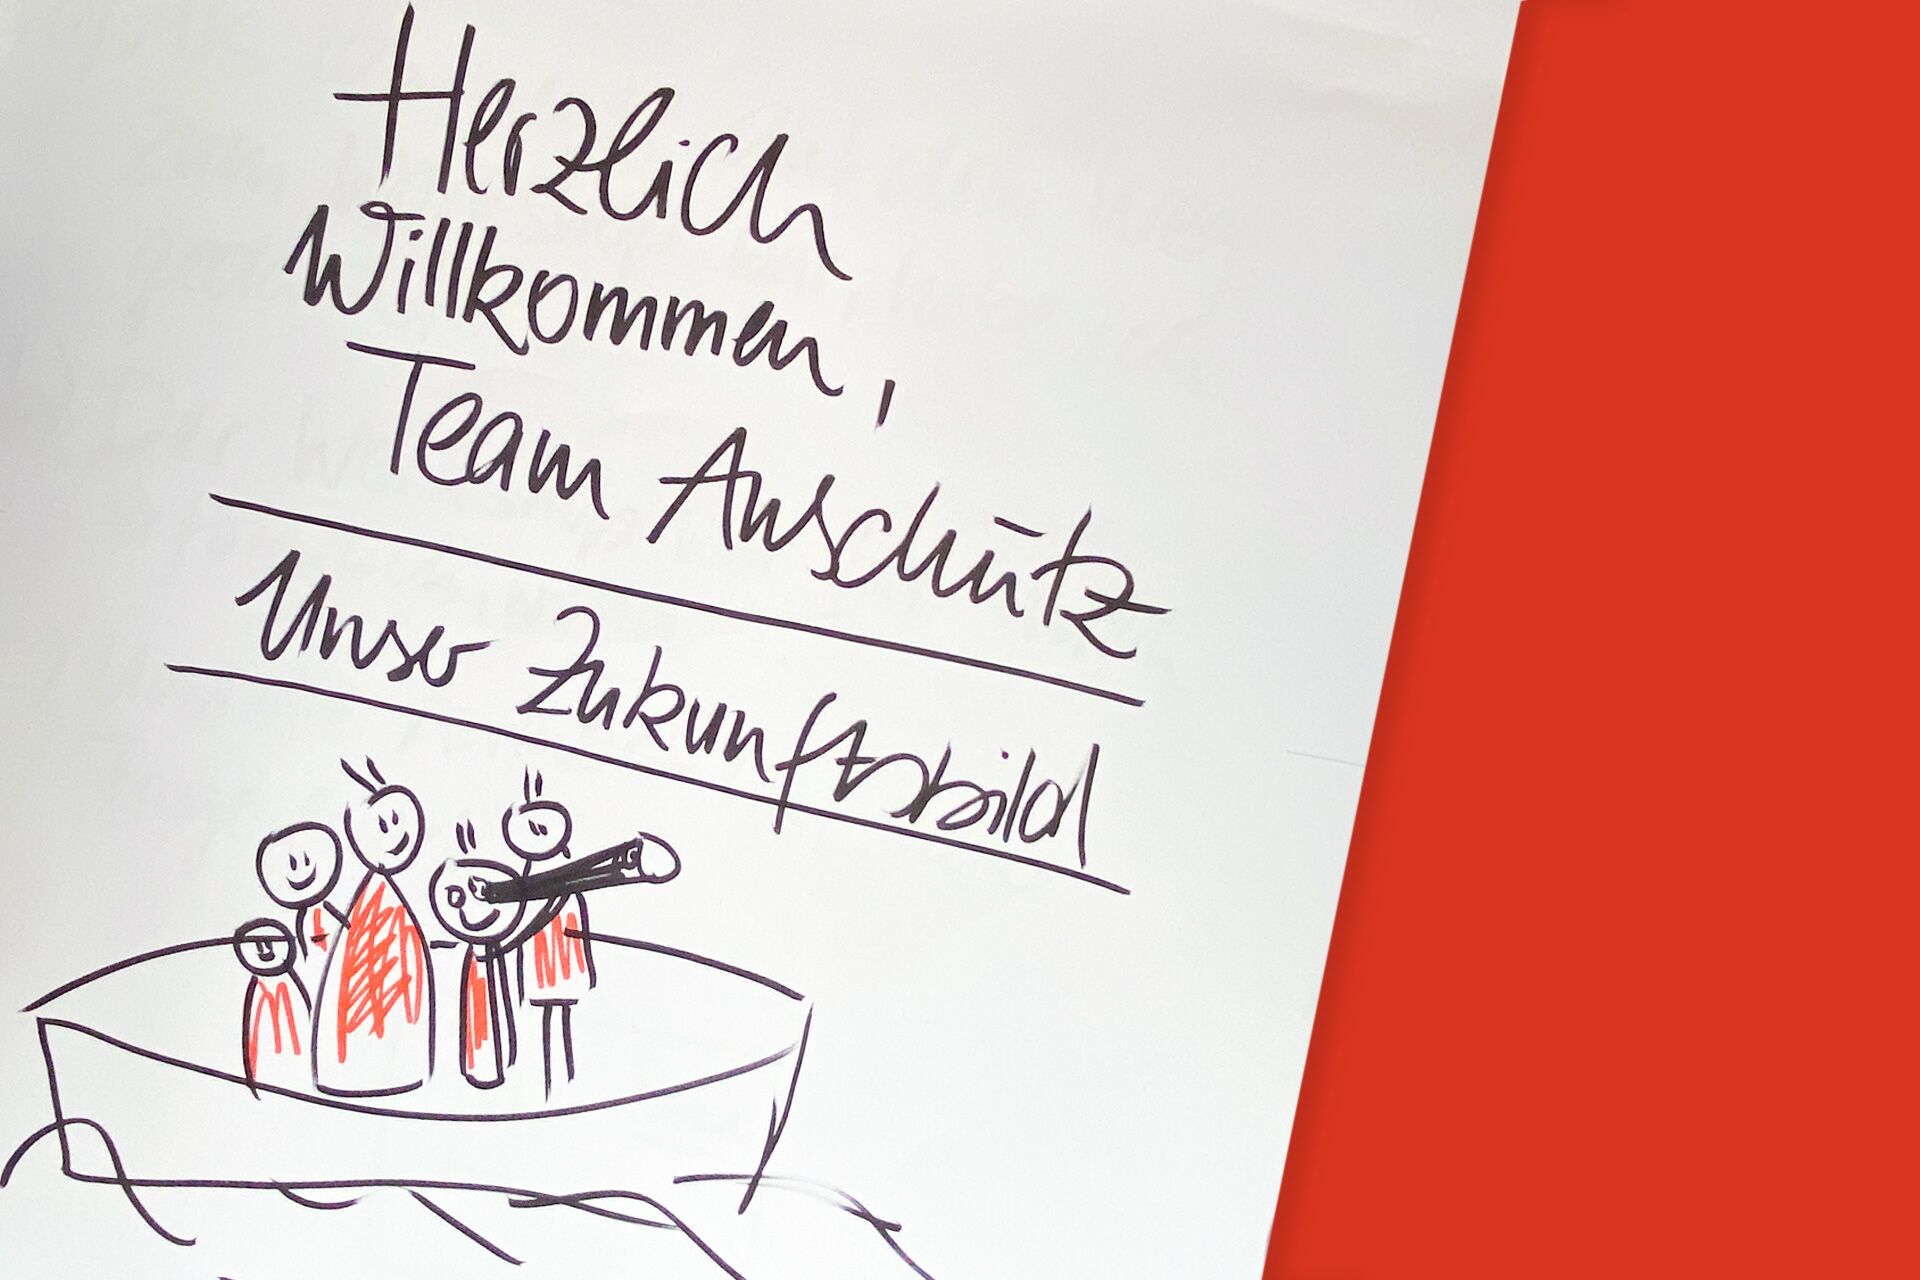 Herzlich
Willkommen,
Team Anschütz
Unser Zukunftsbild